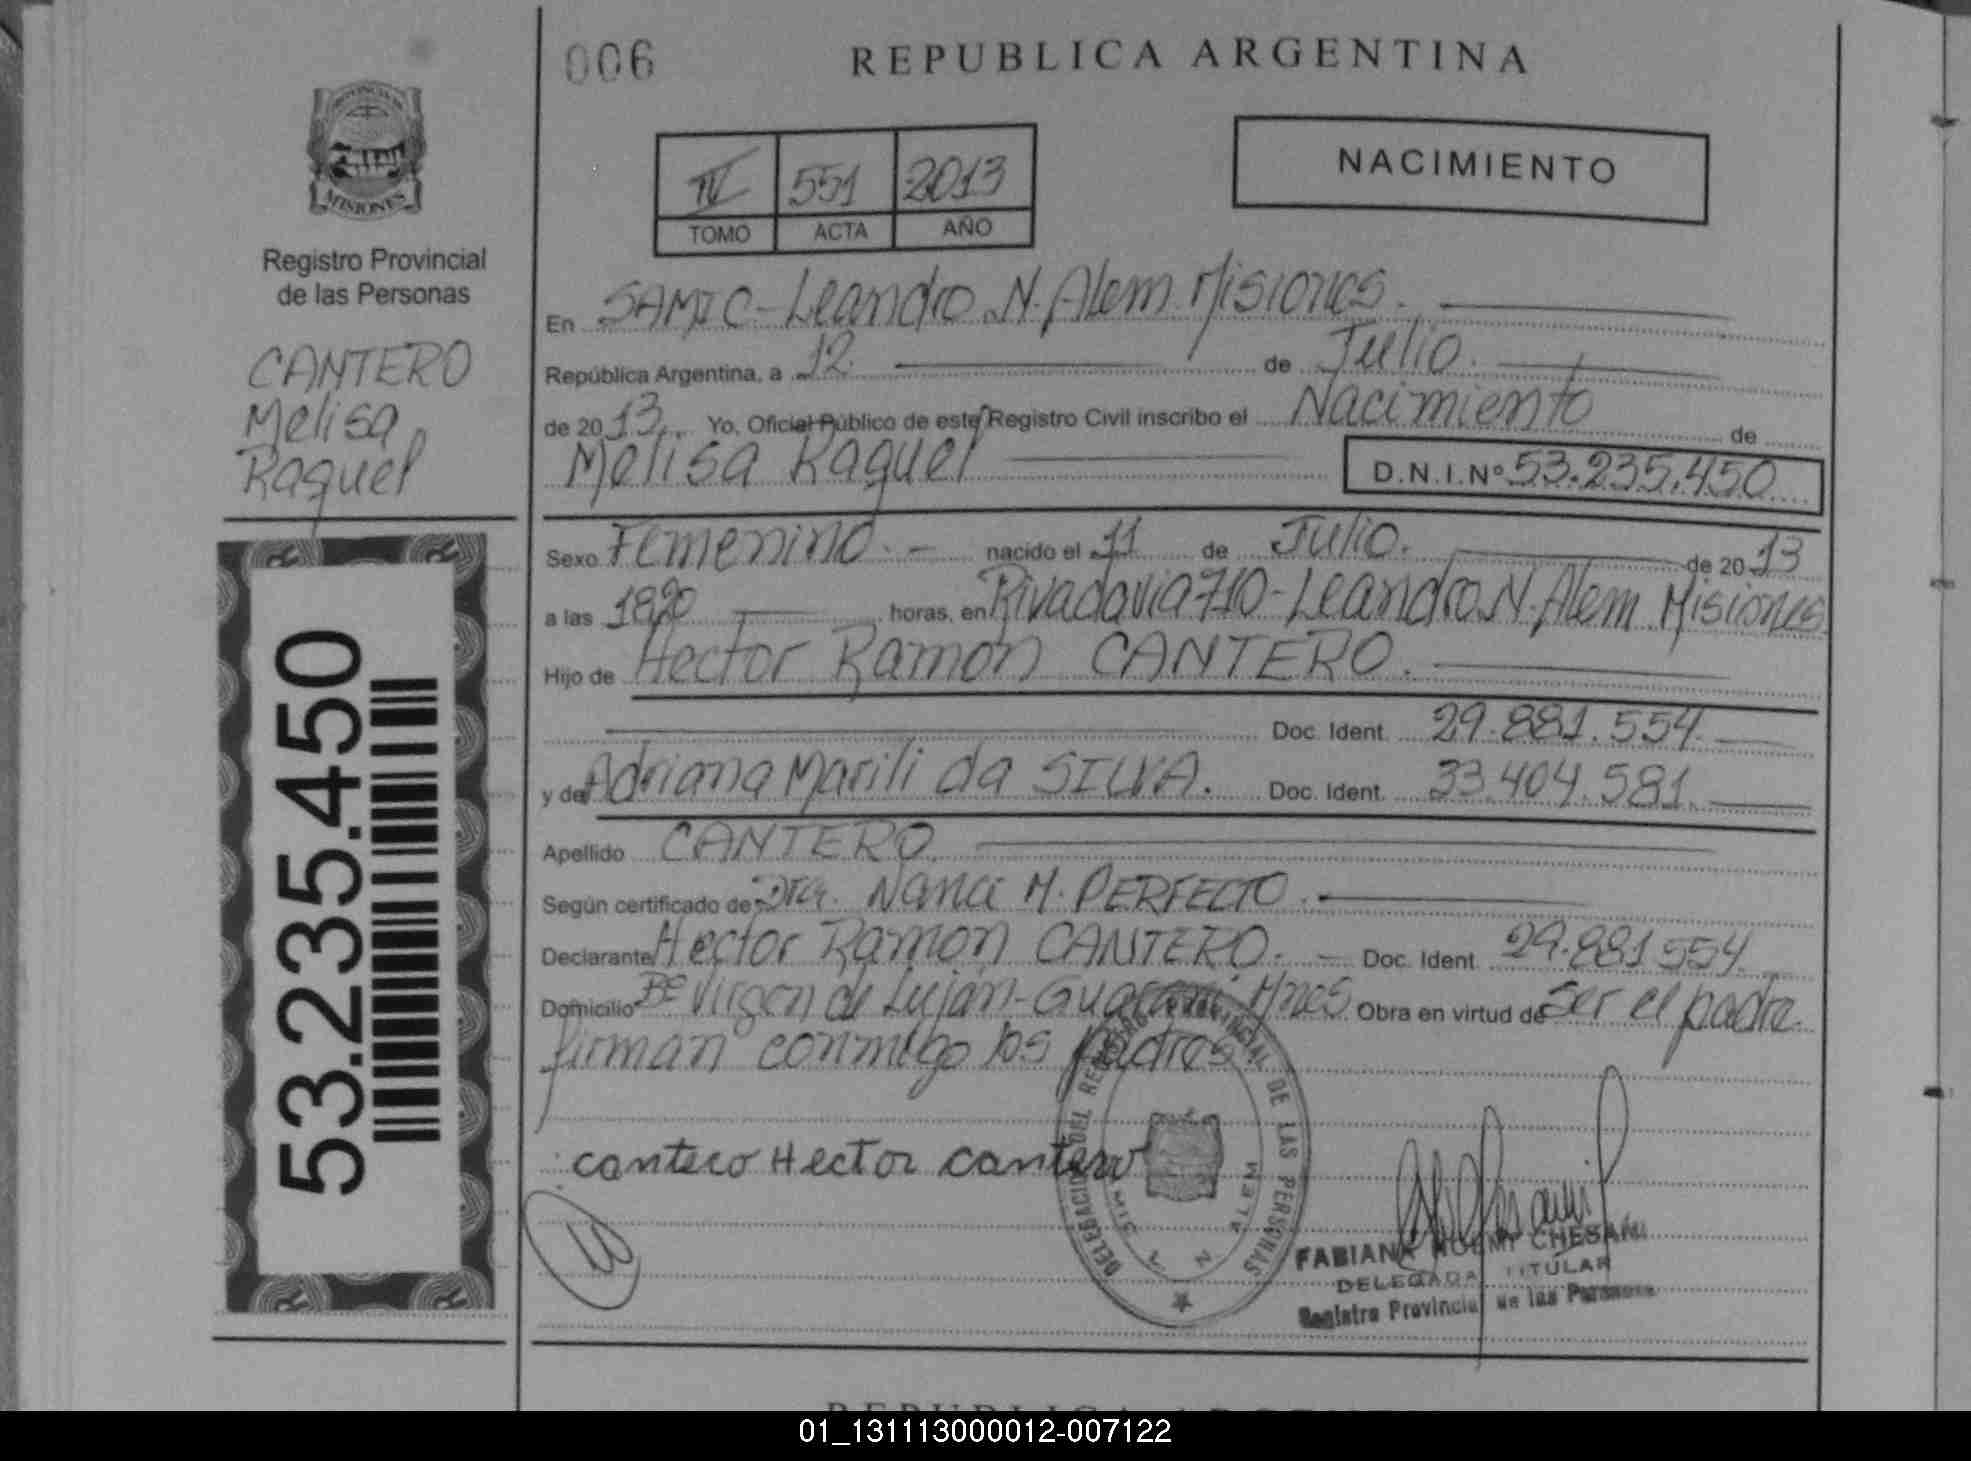 006
REPUBLICA ARGENTINA
PROVINCIA DE
MISIONES
Registro Provincial
de las Personas
CANTERO
Melisa
Raquel
IV 551 2013
TOMO ACTA AÑO
NACIMIENTO
En SAMIC-Leandro N. Alem Misiones.
República Argentina, a 12. de Julio.
de 2013. Yo, Oficial Público de este Registro Civil inscribo el Nacimiento de
Melisa Raquel D.N.I.Nº 53.235.450
Sexo Femenino. nacido el 11 de Julio. de 2013
a las 1820 horas, en Rivadavia 710-Leandro N. Alem Misiones
Hijo de Hector Ramon CANTERO.
Doc. Ident. 29.881.554
y de Adriana Marili da SILVA. Doc. Ident. 33.404.581.
Apellido CANTERO
Según certificado de Dra. Nanci M. PERFECTO.
Declarante Hector Ramon CANTERO. Doc. Ident. 29.881.554
Domicilio Bº Virgen de Luján-Guaraní Mnes Obra en virtud de Ser el padre.
firman conmigo los padres
cantero Hector cantero
DELEGACION DEL REGISTRO PROVINCIAL DE LAS PERSONAS
L. N. ALEM
FABIANA NOEMI CHESANI
DELEGADA TITULAR
Registro Provincial de las Personas
53.235.450
01_131113000012-007122